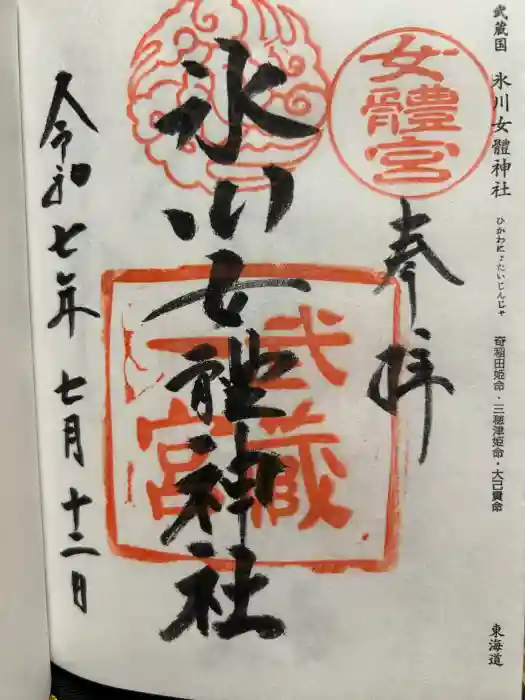 武蔵国 氷川女體神社 ひかわにょたいじんじゃ 奇稲田姫命・三穂津姫命・大己貴命 東海道
女體宮
奉拝
氷川女體神社
武蔵
一宮
令和七年七月十二日